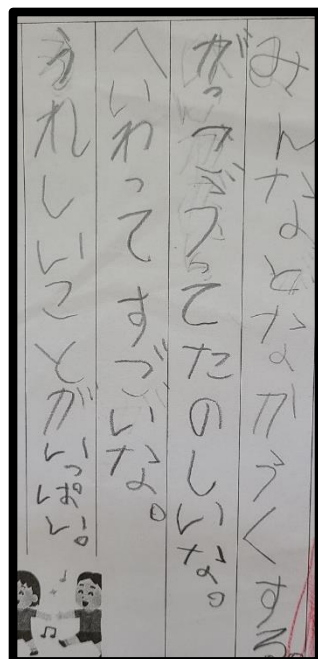 みんなとなかうくする
がっこうってたのしいな。
へいわってすごいな。
うれしいことがいっぱい。